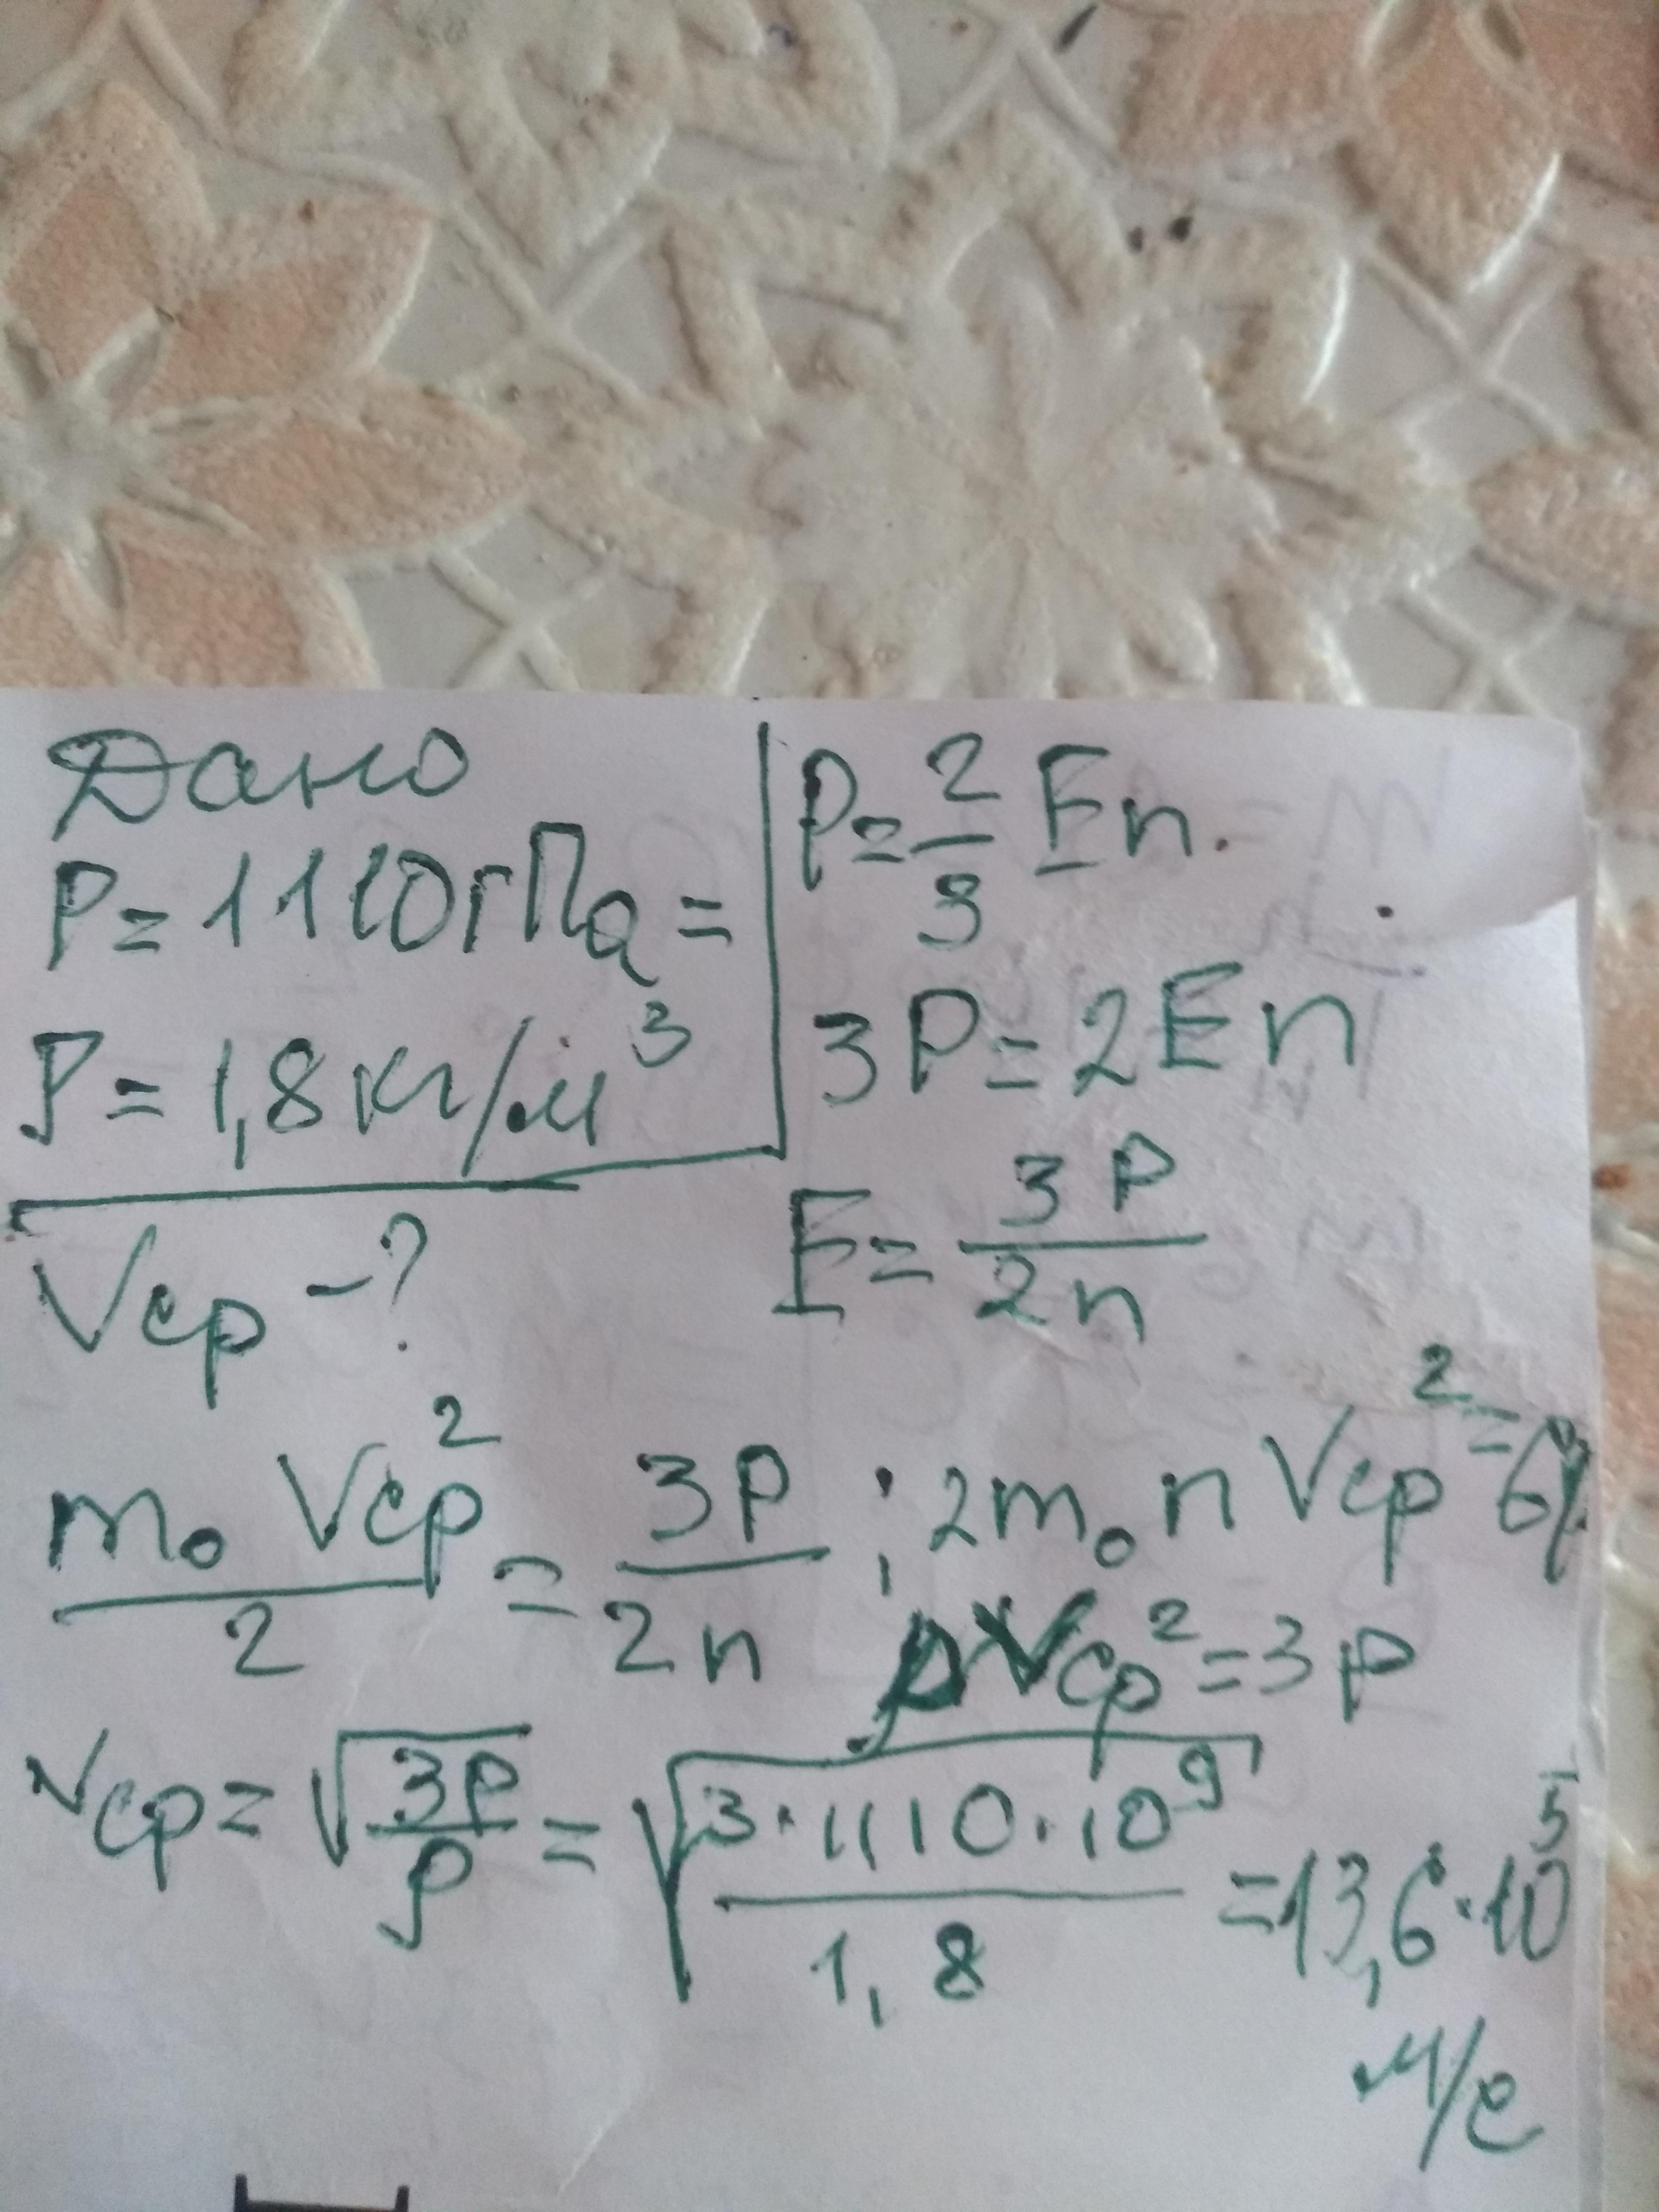 Дано
P=1110гПа=
ρ=1,8кг/м³
Vcp-?
P=2/3 En.
3P=2En
E=3P/2n
m₀Vcp²/2=3P/2n; 2m₀nVcp²=6P
ρVcp²=3P
Vcp=√(3P/ρ)=√(3·1110·10⁹/1,8)=13,6·10⁵
м/с